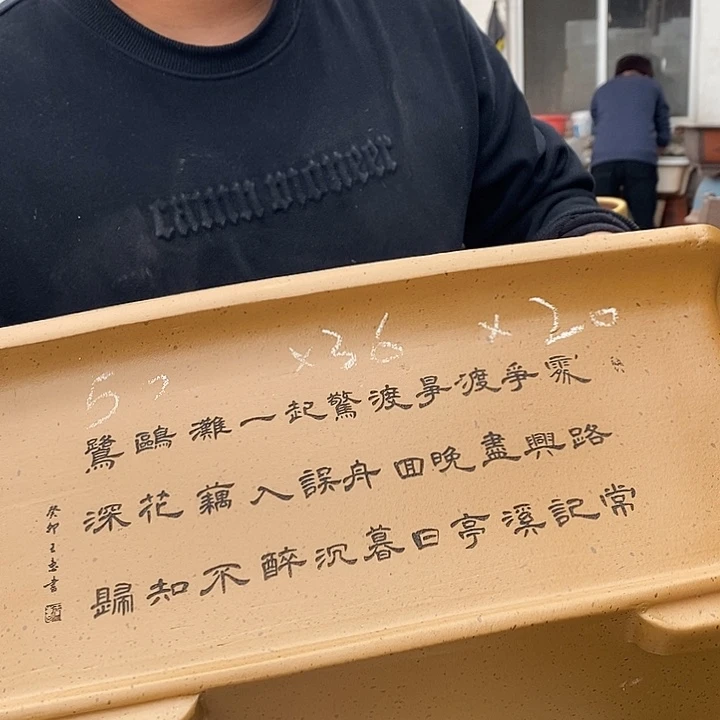 ×36 ×20
常記溪亭日暮沉醉不知歸
路興盡晚回舟誤入藕花深
處爭渡爭渡驚起一灘鷗鷺
癸卯王書